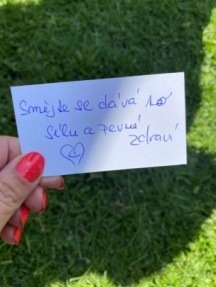 Smějte se dává to
sílu a pevné
zdraví